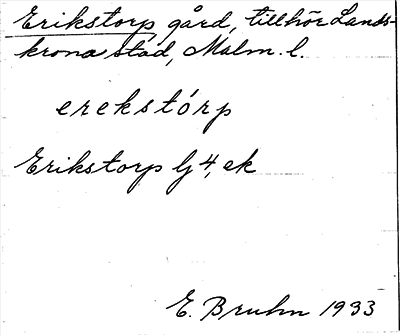 Erikstorp gård, tillhör Lands-
krona stad, Malm. l.
erekstórp
Erikstorp lj 4, ek
E. Bruhn 1933